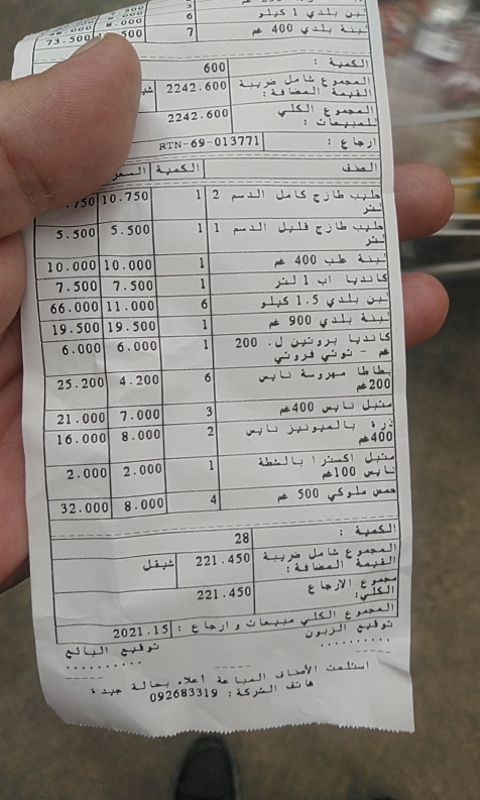 لبن بلدي 1 كيلو 6 8.000
لبنة بلدي 400 غم 7 73.500
الكمية : 600
المجموع شامل ضريبة القيمة المضافة: 2242.600
المجموع الكلي للمبيعات : 2242.600
ارجاع : RTN-69-013771
الصنف الكمية السعر
حليب طازج كامل الدسم 2 لتر 1 10.750
حليب طازج قليل الدسم 1 لتر 1 5.500 5.500
لبنة طب 400 غم 1 10.000 10.000
كانديا اب 1 لتر 1 7.500 7.500
لبن بلدي 1.5 كيلو 6 11.000 66.000
لبنة بلدي 900 غم 1 19.500 19.500
كانديا بروتين ل. 200 غم - توتي فروتي 1 6.000 6.000
بطاطا مهروسة نايس 200غم 6 4.200 25.200
متبل نايس 400غم 3 7.000 21.000
ذرة بالميونيز نايس 400غم 2 8.000 16.000
متبل اكسترا بالشطة نايس 100غم 1 2.000 2.000
حمص ملوكي 500 غم 4 8.000 32.000
الكمية : 28
المجموع شامل ضريبة القيمة المضافة: 221.450 شيقل
مجموع الارجاع الكلي: 221.450
المجموع الكلي مبيعات وارجاع : 2021.15
توقيع الزبون توقيع البائع
.......... ..........
استلمت الأصناف المباعة أعلاه بحالة جيدة
هاتف الشركة: 092683319